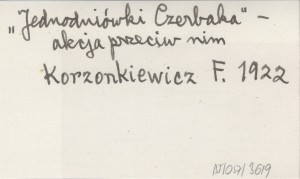 „Jednodniówki Czerbaka" –
akcja przeciw nim
Korzonkiewicz F. 1922
N/017/3619